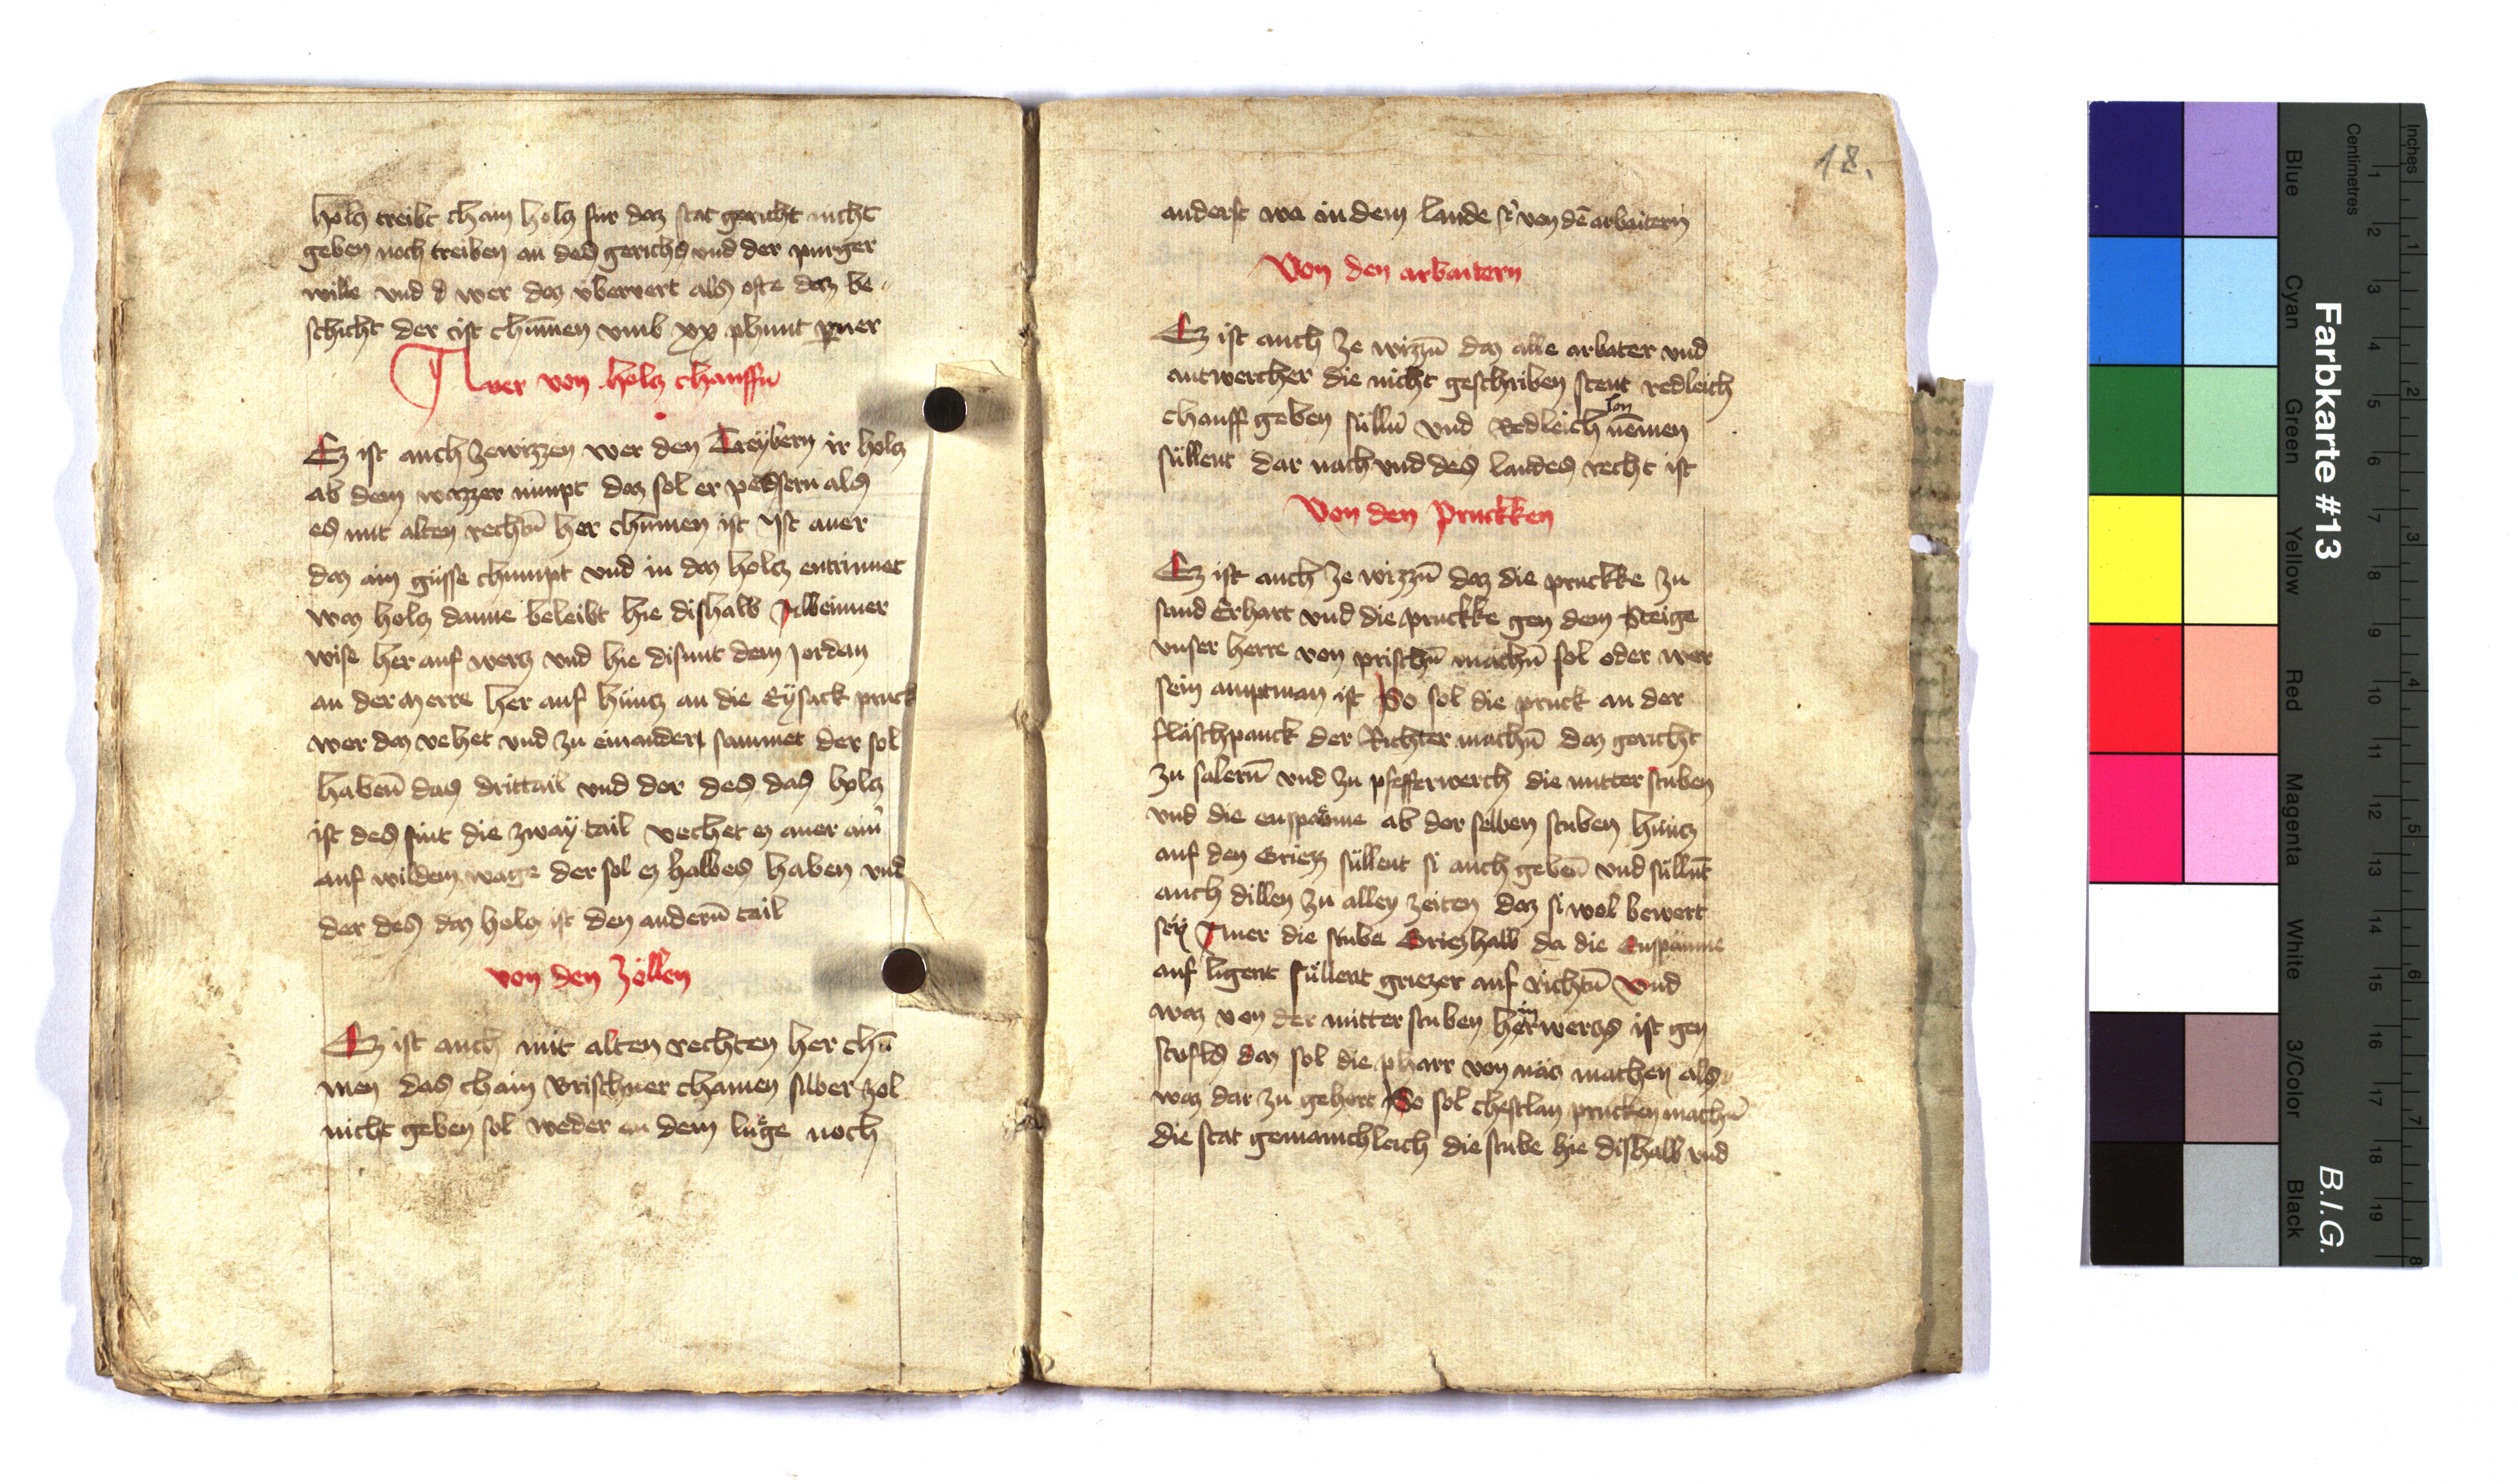 holcz treibt chain holcz fur daz stat gericht nicht
geben noch treiben an des gerichcz vnd der purger
wille vnd d wer daz vberuert als ofte daz be
schicht der ist chūmen vmb xx phunt pner
Auer von holcz chauffn
Ez ist auch ze wizzen wer den Treÿbern ir holcz
ab dem wazzer nimpt daz sol er pessern als
es mit alten rechtn̄ her chūmen ist Ist auer
daz ain güsse chumpt vnd in daz holcz entrinnet
waz holcz danne beleibt hie dishalb
wise her auf wercz vnd hie disunt dem Jordan
an der merre her auf hüncz an die Eÿsack pruck
wer daz vehet vnd zu einander sammet der sol
haben̄ das drittail vnd der des das holcz
ist des sint die zwaÿ tail vechet ez auer ain̄
auf wildem wage der sol ez halbes haben vnd
der des daz holcz ist den andern̄ tail
von den Zöllen
Ez ist auch mit alten rechten her chū
men das chain Brischner chainen silber zol
nicht geben sol weder an dem lüge noch
18.
anderst wa in dem lande von dē arbaitern
Von den arbaitern
Ez ist auch ze wizzn̄ daz alle arbater vnd
antwercher die nicht geschriben stent redleich
chauff geben sülln̄ vnd Redleich lon nēmen
süllent dar nach vnd des landes recht ist
Von den Pruckken
Ez ist auch ze wizzn̄ daz die pruckke zu
sand Erhart vnd die pruckke gen dem Steige
vnser herre von prischn̄ machn̄ sol oder wer
sein amptman ist So sol die pruck an der
fläschpanck der Richter machn̄ daz gericht
zu salern̄ vnd zu pfefferwerch die mitter stuben
vnd die enspäwme ab der selben stuben hüncz
auf den Griezz süllent si auch geben̄ vnd süllnt̄
auch dillen zu allen zeiten daz si wol bewert
seÿ Auer die stube Griezhalb da die Enspäume
auf ligent süllent griezer auf richtn̄ Vnd
waz von der mitter stuben her in wercz ist gen
stufls daz sol die pharr von nacz machen als
waz dar zu gehort So sol chestlan prucken machn̄
die stat gemainchleich die stube hie dishalb vnd
Farbkarte #13
B.I.G.
Inches
Centimetres
1 2 3 4 5 6 7 8 9 10 11 12 13 14 15 16 17 18 19
1 2 3 4 5 6 7 8
Blue
Cyan
Green
Yellow
Red
Magenta
White
3/Color
Black